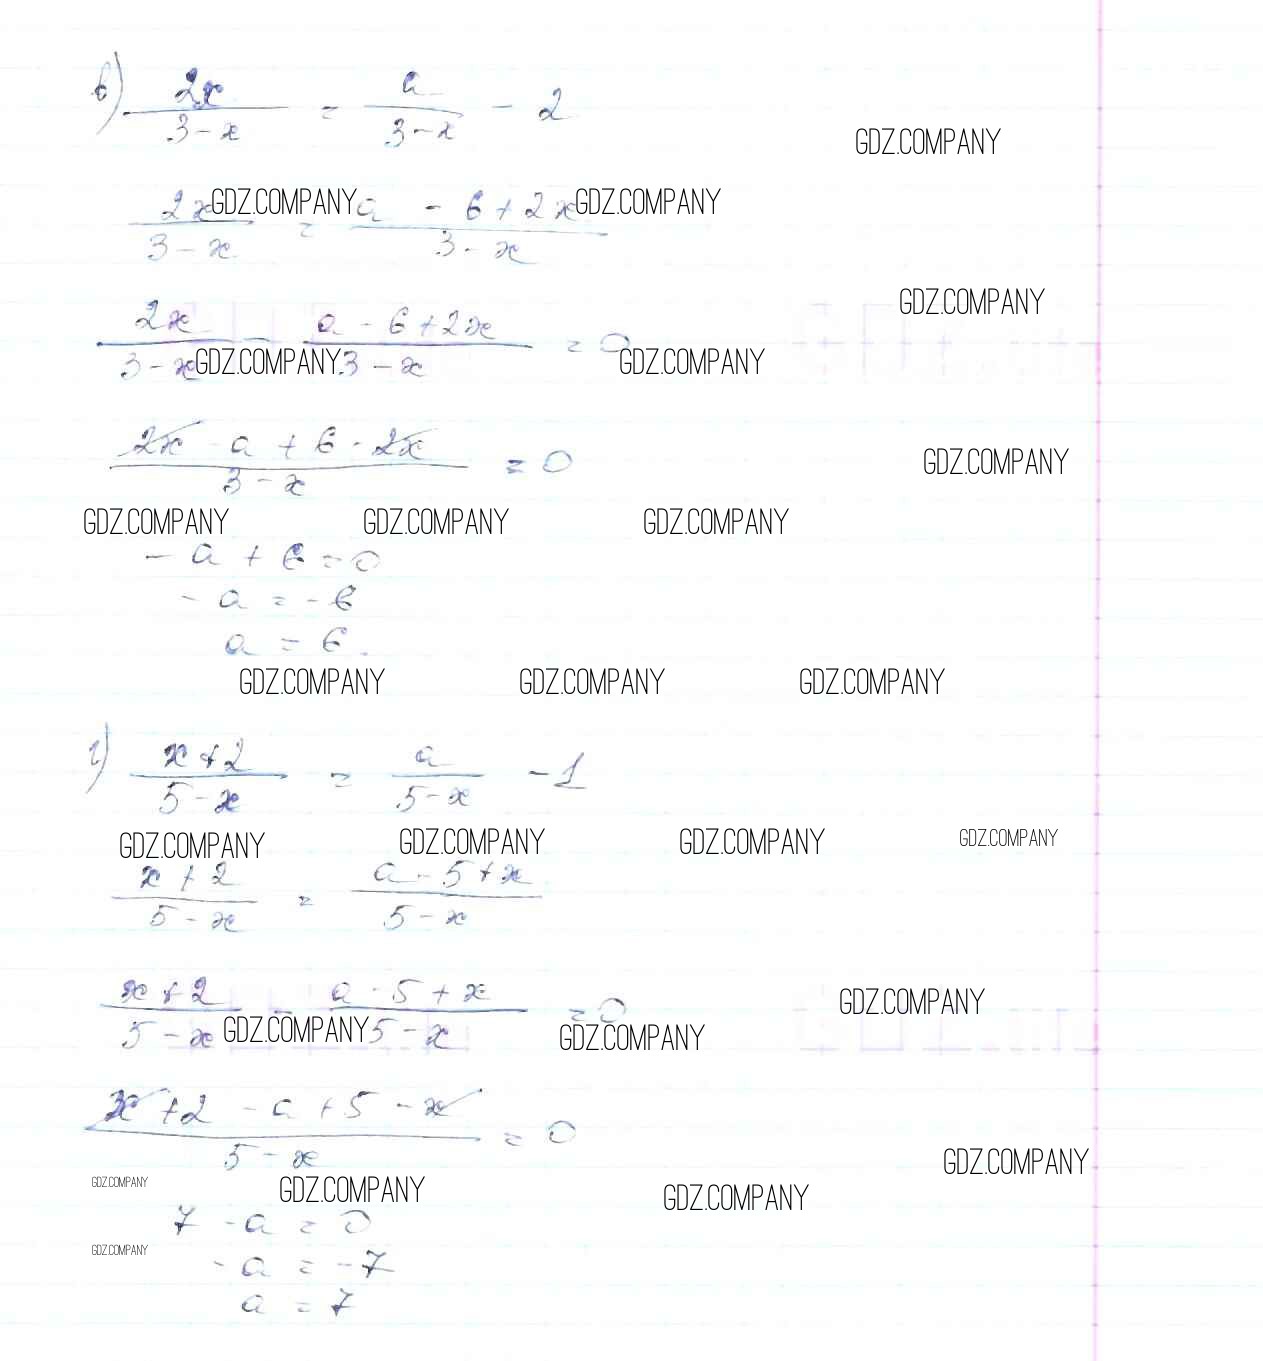 в) 2x/(3-x) = a/(3-x) - 2
GDZ.COMPANY
2x/(3-x) = (a - 6 + 2x)/(3-x)
GDZ.COMPANY GDZ.COMPANY
GDZ.COMPANY
2x/(3-x) - (a - 6 + 2x)/(3-x) = 0
GDZ.COMPANY GDZ.COMPANY
(2x - a + 6 - 2x)/(3-x) = 0
GDZ.COMPANY
GDZ.COMPANY GDZ.COMPANY GDZ.COMPANY
- a + 6 = 0
- a = -6
a = 6.
GDZ.COMPANY GDZ.COMPANY GDZ.COMPANY
г) (x+2)/(5-x) = a/(5-x) - 1
GDZ.COMPANY GDZ.COMPANY GDZ.COMPANY GDZ.COMPANY
(x+2)/(5-x) = (a-5+x)/(5-x)
(x+2)/(5-x) - (a-5+x)/(5-x) = 0
GDZ.COMPANY
GDZ.COMPANY GDZ.COMPANY
(x+2 - a + 5 - x)/(5-x) = 0
GDZ.COMPANY
GDZ.COMPANY GDZ.COMPANY GDZ.COMPANY
7 - a = 0
GDZ.COMPANY
- a = -7
a = 7